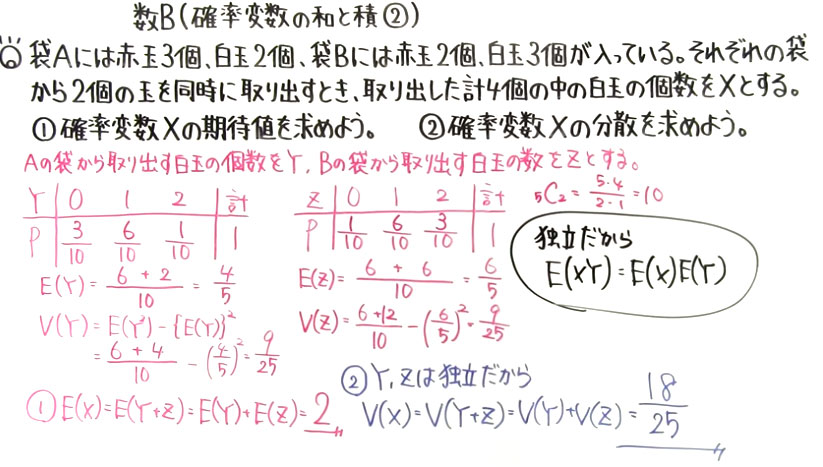 数B(確率変数の和と積②)
袋Aには赤玉3個、白玉2個、袋Bには赤玉2個、白玉3個が入っている。それぞれの袋
から2個の玉を同時に取り出すとき、取り出した計4個の中の白玉の個数をXとする。
①確率変数Xの期待値を求めよう。 ②確率変数Xの分散を求めよう。
Aの袋から取り出す白玉の個数をY, Bの袋から取り出す白玉の数をZとする。
Y 0 1 2 計
P 3/10 6/10 1/10 1
Z 0 1 2 計
P 1/10 6/10 3/10 1
₅C₂ = 5・4/2・1 = 10
独立だから
E(XY) = E(X)E(Y)
E(Y) = 6+2/10 = 4/5
V(Y) = E(Y²) - {E(Y)}²
= 6+4/10 - (4/5)² = 9/25
E(Z) = 6+6/10 = 6/5
V(Z) = 6+12/10 - (6/5)² = 9/25
① E(X) = E(Y+Z) = E(Y) + E(Z) = 2
② Y, Zは独立だから
V(X) = V(Y+Z) = V(Y) + V(Z) = 18/25